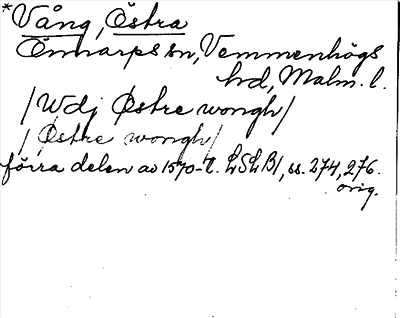 *Vång, Östra
Önnarps sn, Vemmenhögs
hd, Malm. l.
/Wdj Østre wongh/
/Østre wongh/
förra delen av 1570-t. LSLB1, ss. 274, 276.
orig.